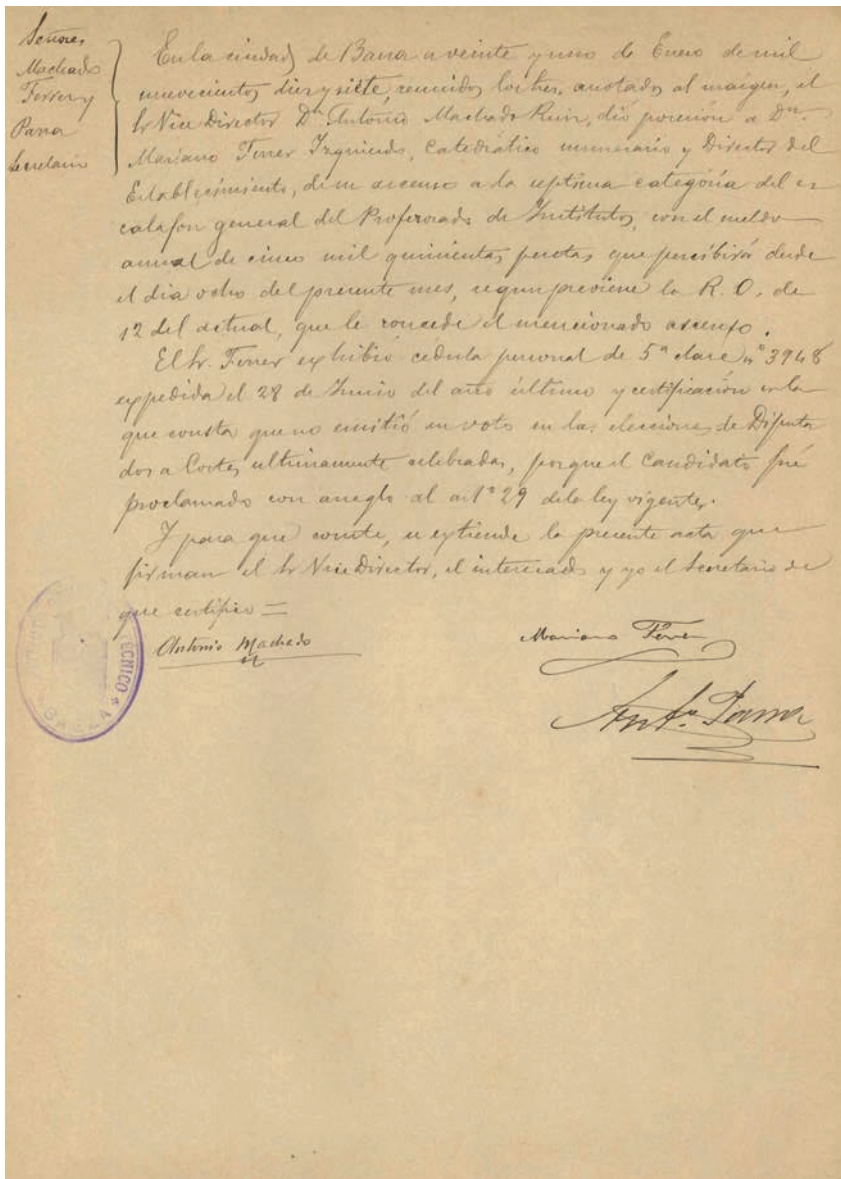 Señores
Machado
Ferrer y
Parra
Secretario
En la ciudad de Baeza a veinte y uno de Enero de mil
novecientos diez y siete, reunidos los Sres. anotados al margen, el
Sr Vice Director Dn Antonio Machado Ruiz, dió posesión a Dn.
Mariano Ferrer Izquierdo, Catedrático numerario y Director del
Establecimiento, de su ascenso a la septima categoria del es
calafon general del Profesorado de Institutos, con el sueldo
anual de cinco mil quinientas pesetas que percibirá desde
el dia ocho del presente mes, segun previene la R. O. de
12 del actual, que le concede el mencionado ascenso.
El Sr. Ferrer exhibió cédula personal de 5ª clase nº 3948
expedida el 28 de Junio del año último y certificación en la
que consta que no emitió su voto en las elecciones de Diputa
dos a Cortes ultimamente celebradas, porque el Candidato fué
proclamado con arreglo al artº 29 de la ley vigente.
Y para que conste, se extiende la presente acta que
firman el Sr Vice Director, el interesado y yo el Secretario de
que certifico =
Antonio Machado
Mariano Ferrer
Antº Parra
TECNICO
BAEZA